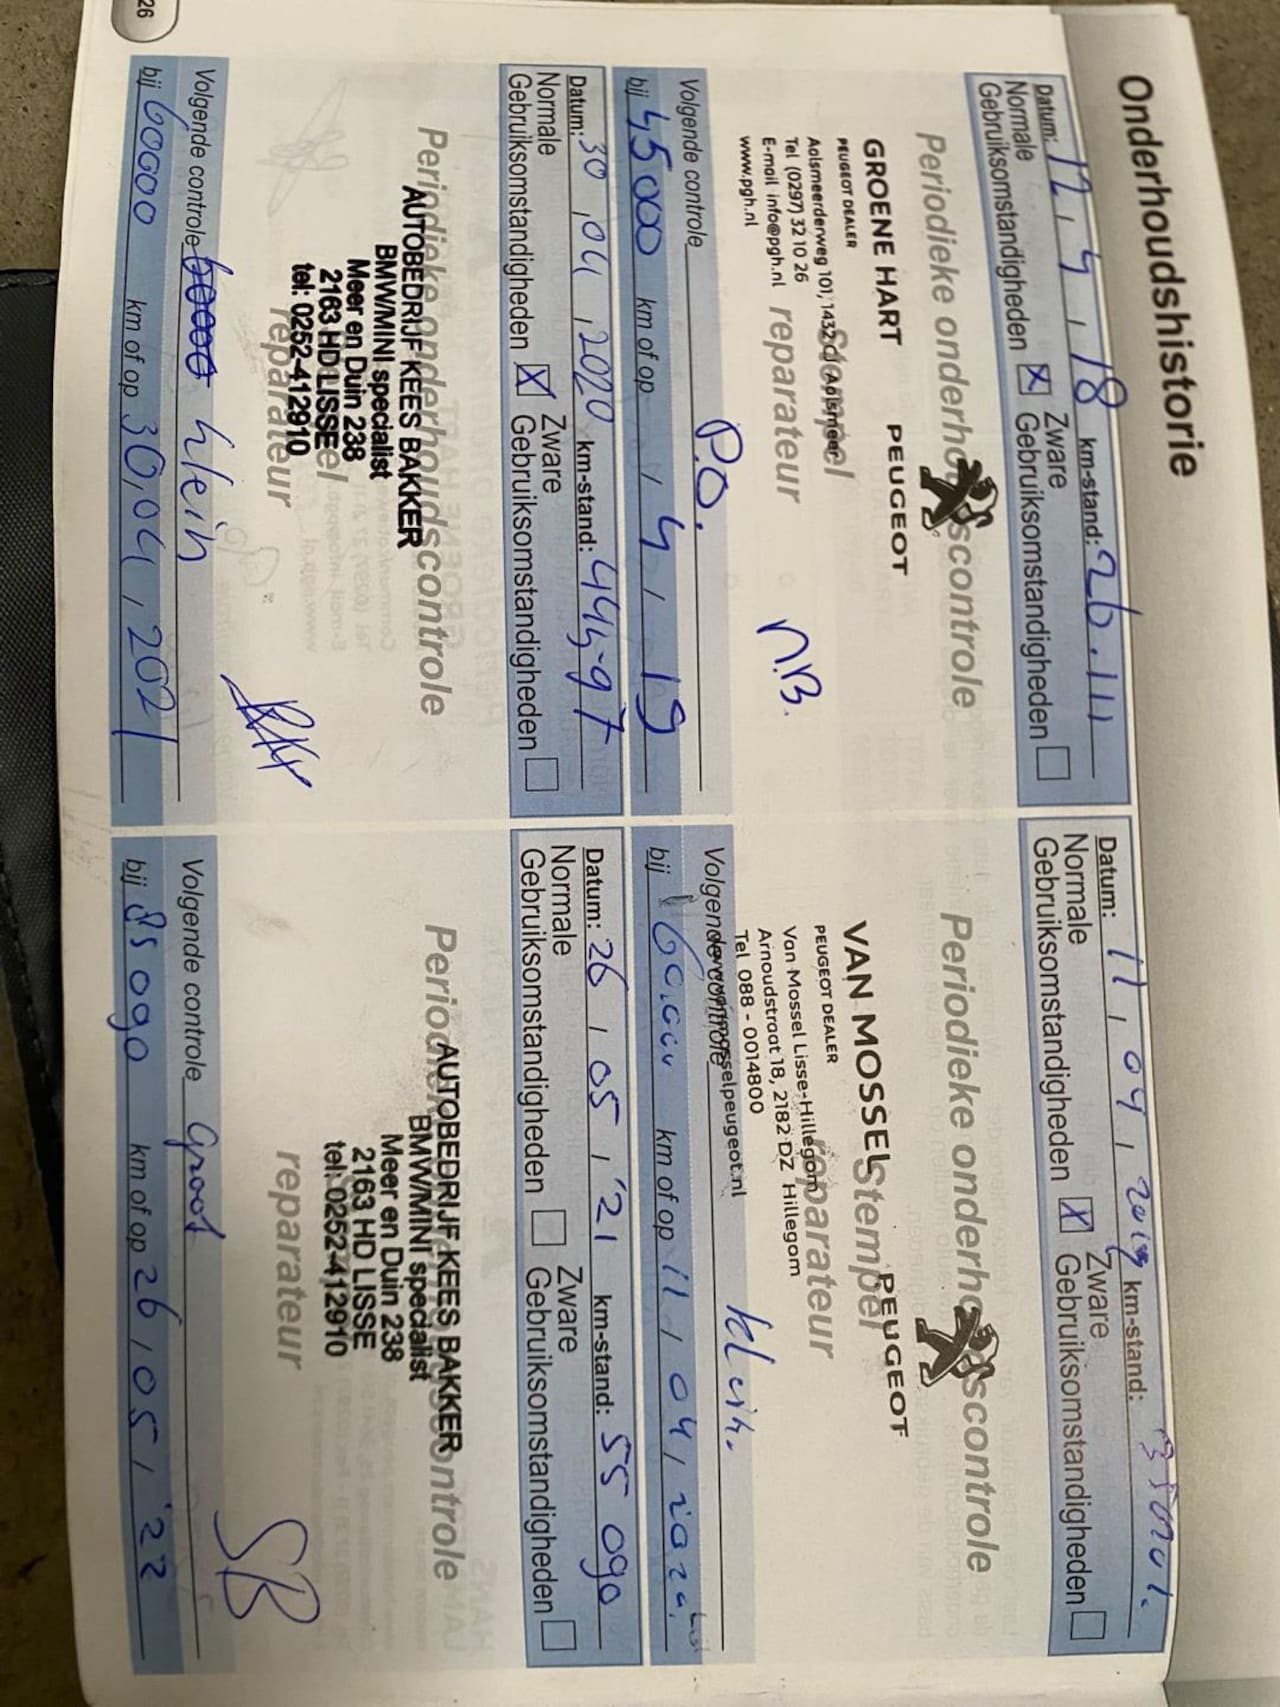 Onderhoudshistorie
Datum: 12, 4, 18 km-stand: 26.111
Normale Gebruiksomstandigheden X Zware Gebruiksomstandigheden
Periodieke onderhoudscontrole
GROENE HART PEUGEOT
PEUGEOT DEALER
Aalsmeerderweg 101, 1432 CJ Aalsmeer
Tel (0297) 32 10 26
E-mail info@pgh.nl
www.pgh.nl
Stempel
reparateur
n.B.
Volgende controle P.O.
bij 45000 km of op 1, 4, 19
Datum: 11, 04, 2019 km-stand:
Normale Gebruiksomstandigheden X Zware Gebruiksomstandigheden
Periodieke onderhoudscontrole
VAN MOSSEL PEUGEOT
PEUGEOT DEALER
Van Mossel Lisse-Hillegom
Arnoudstraat 18, 2182 DZ Hillegom
Tel 088 - 0014800
Stempel
reparateur
Volgende controle klein.
bij 60.000 km of op 11, 04, 2020
Datum: 30, 04, 2020 km-stand: 44497
Normale Gebruiksomstandigheden X Zware Gebruiksomstandigheden
Periodieke onderhoudscontrole
AUTOBEDRIJF KEES BAKKER
BMW/MINI specialist
Meer en Duin 238
2163 HD LISSE
tel: 0252-412910
reparateur
Volgende controle klein
bij 60000 km of op 30, 04, 2021
Datum: 26, 05, '21 km-stand: 55 090
Normale Gebruiksomstandigheden Zware Gebruiksomstandigheden
Periodieke onderhoudscontrole
AUTOBEDRIJF KEES BAKKER
BMW/MINI specialist
Meer en Duin 238
2163 HD LISSE
tel: 0252-412910
reparateur
SB
Volgende controle groot
bij 85 090 km of op 26, 05, '22
26